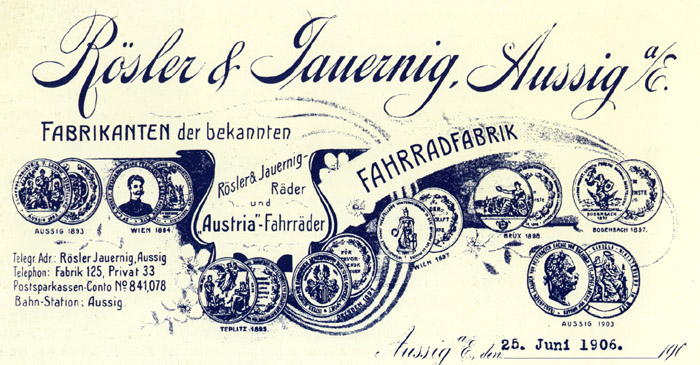 Rösler & Jauernig, Aussig a/E.
FABRIKANTEN der bekannten
FAHRRADFABRIK
Rösler & Jauernig-
Räder
und
„Austria"-Fahrräder
AUSSIG 1893
WIEN 1894
WIEN 1897
BRÜX 1898.
BODENBACH 1897.
Telegr. Adr.: Rösler Jauernig, Aussig
Telephon: Fabrik 125, Privat 33
Postsparkassen-Conto No 841,078
Bahn-Station: Aussig.
TEPLITZ 1895.
AUSSIG 1903
Aussig a/E, den 25. Juni 1906. 190